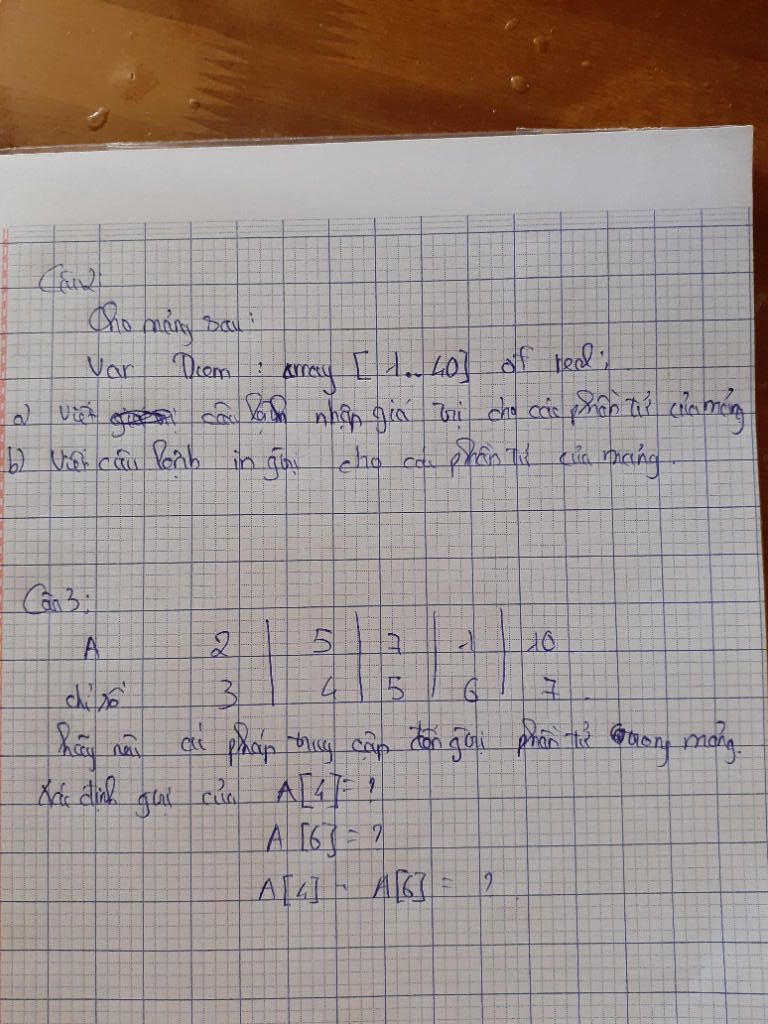 Câu 2:
Cho mảng sau:
Var Diem : array [1..40] of real;
a) Viết câu lệnh nhận giá trị cho các phần tử của mảng
b) Viết câu lệnh in giá trị cho các phần tử của mảng.
Câu 3:
A 2 5 7 1 10
chỉ số 3 4 5 6 7
hãy nêu cú pháp truy cập đến giá trị phần tử trong mảng.
Xác định giá trị của A[4] = ?
A[6] = ?
A[4] . A[6] = ?